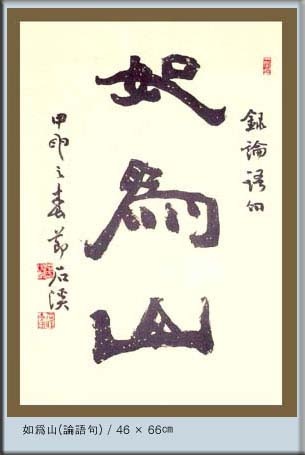 錄論語句
如爲山
甲申之春 石溪
如爲山(論語句) / 46 × 66㎝